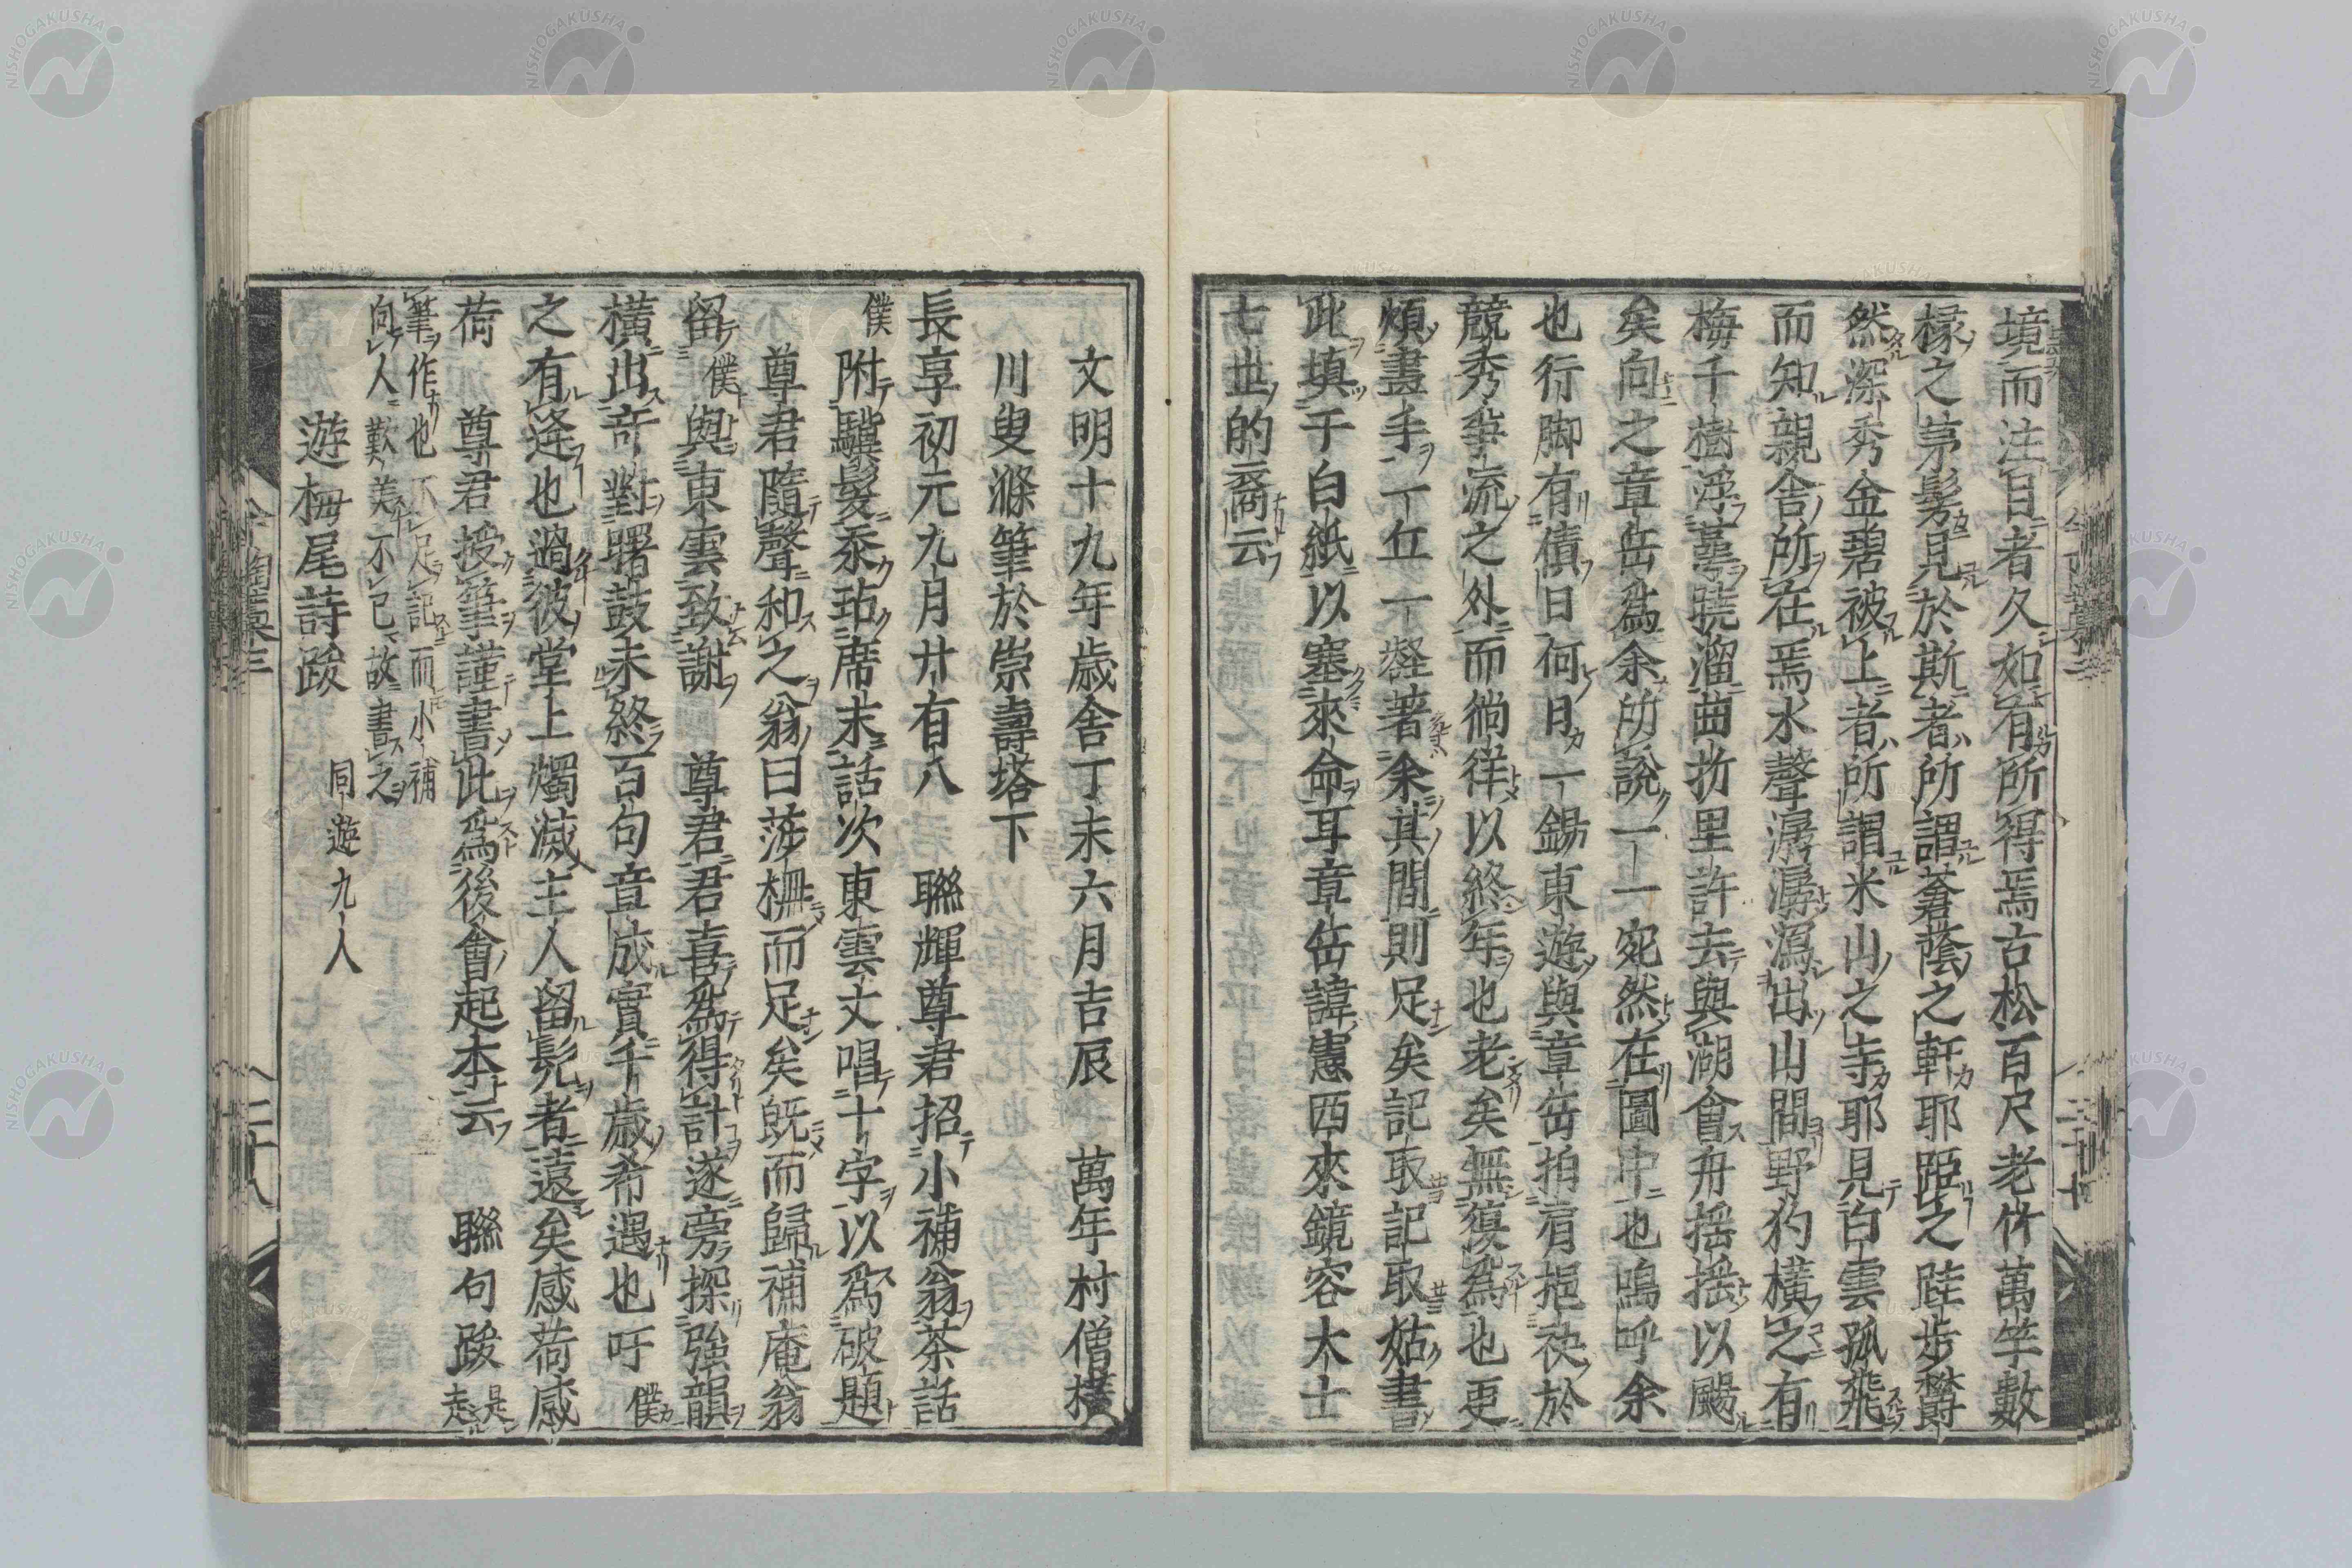 境而注目者久如有所得焉古松百尺老竹萬竿數
椽之茅髣見於斯者所謂蒼蔭之軒耶距之跬步欝
然深秀金碧被上者所謂米山之寺耶見白雲孤飛
而知親舎所在焉水聲潺潺瀉出山間野彴橫之有
梅千樹浮夢曉溜曲折里許去與湖會舟搖搖以颺
矣向之章岳爲余所說一一宛然在圖中也嗚呼余
也行脚有債日何日一錫東遊與章岳拍肩挹袂於
競秀爭流之外而徜徉以終年也老矣無復爲也更
煩畫手一丘一壑著余其間則足矣記取記取姑書
此填于白紙以塞來命耳章岳諱憲西來鏡容大士
七世的裔云
文明十九年歲舎丁未六月吉辰 萬年村僧橫
川叟滌筆於崇壽塔下
長享初元九月廿有八 聯輝尊君招小補翁茶話
僕附驥髮忝玷席末話次東雲丈唱十字以爲破題
尊君隨聲和之翁曰莎柵而足矣既而歸補庵翁
留僕與東雲致謝 尊君君喜爲得計遂旁探強韻
橫出奇對曙鼓未終百句章成實千歲希遇也吁僕
之有逢也過彼堂上燭滅主人留髡者遠矣感荷感
荷 尊君授筆謹書此爲後會起本云 聯句跋是走
筆作也不足記而小補
向人歎美不已故書之
遊栂尾詩跋 同遊九人